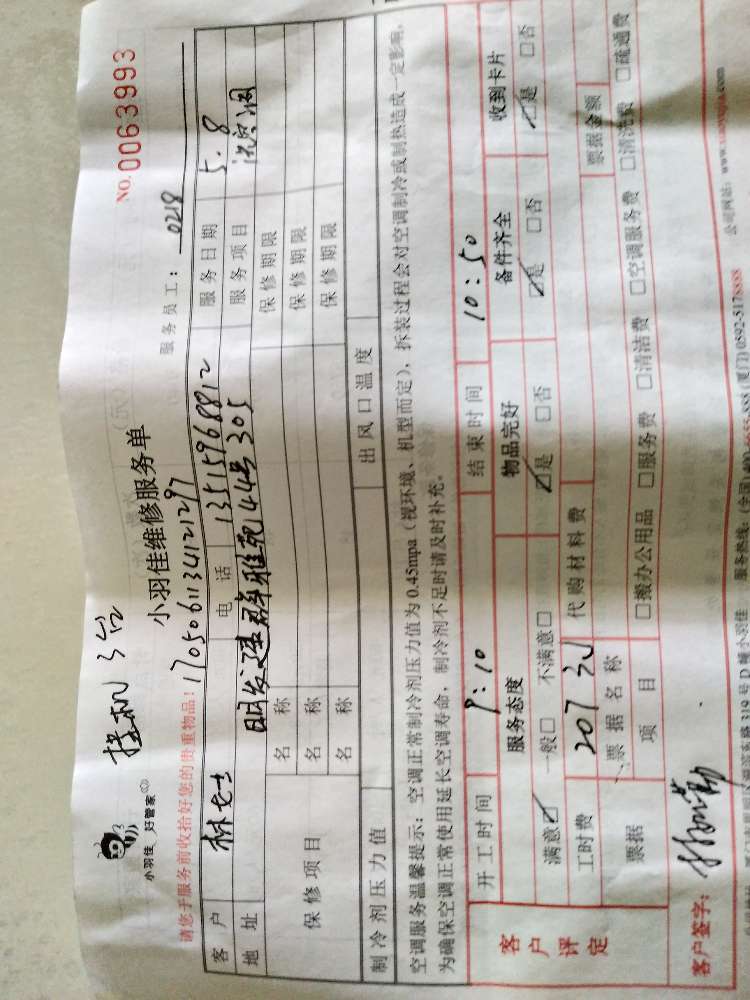 挂机 3台
NO. 0063993
小羽佳 好管家
小羽佳维修服务单
请您于服务前收拾好您的贵重物品! 170506113412129 7 服务员工: 0218
客户 林女士 电话 13515968812 服务日期 5.8
地址 明发建群雅苑44号305 服务项目 洗空调
保修项目 名称 保修期限
名称 保修期限
名称 保修期限
制冷剂压力值 出风口温度
空调服务温馨提示: 空调正常制冷剂压力值为0.45mpa (视环境、机型而定), 拆装过程会对空调制冷或制热造成一定影响,
为确保空调正常使用延长空调寿命, 制冷剂不足时请及时补充。
客户评定 开工时间 9:10 结束时间 10:50
服务态度 物品完好 备件齐全 收到卡片
满意☑ 一般□ 不满意□ ☑是 □否 ☑是 □否 ☑是 □否
工时费 207元 代购材料费 票据金额
票据 票据名称
项目 □搬办公用品 □服务费 □清洁费 □空调服务费 □清洗费 □疏通费
客户签字:
319号D幢小羽佳 服务热线: (全国)400- (厦门)0592-5178888 公司网站: www.xiaoyujia.com